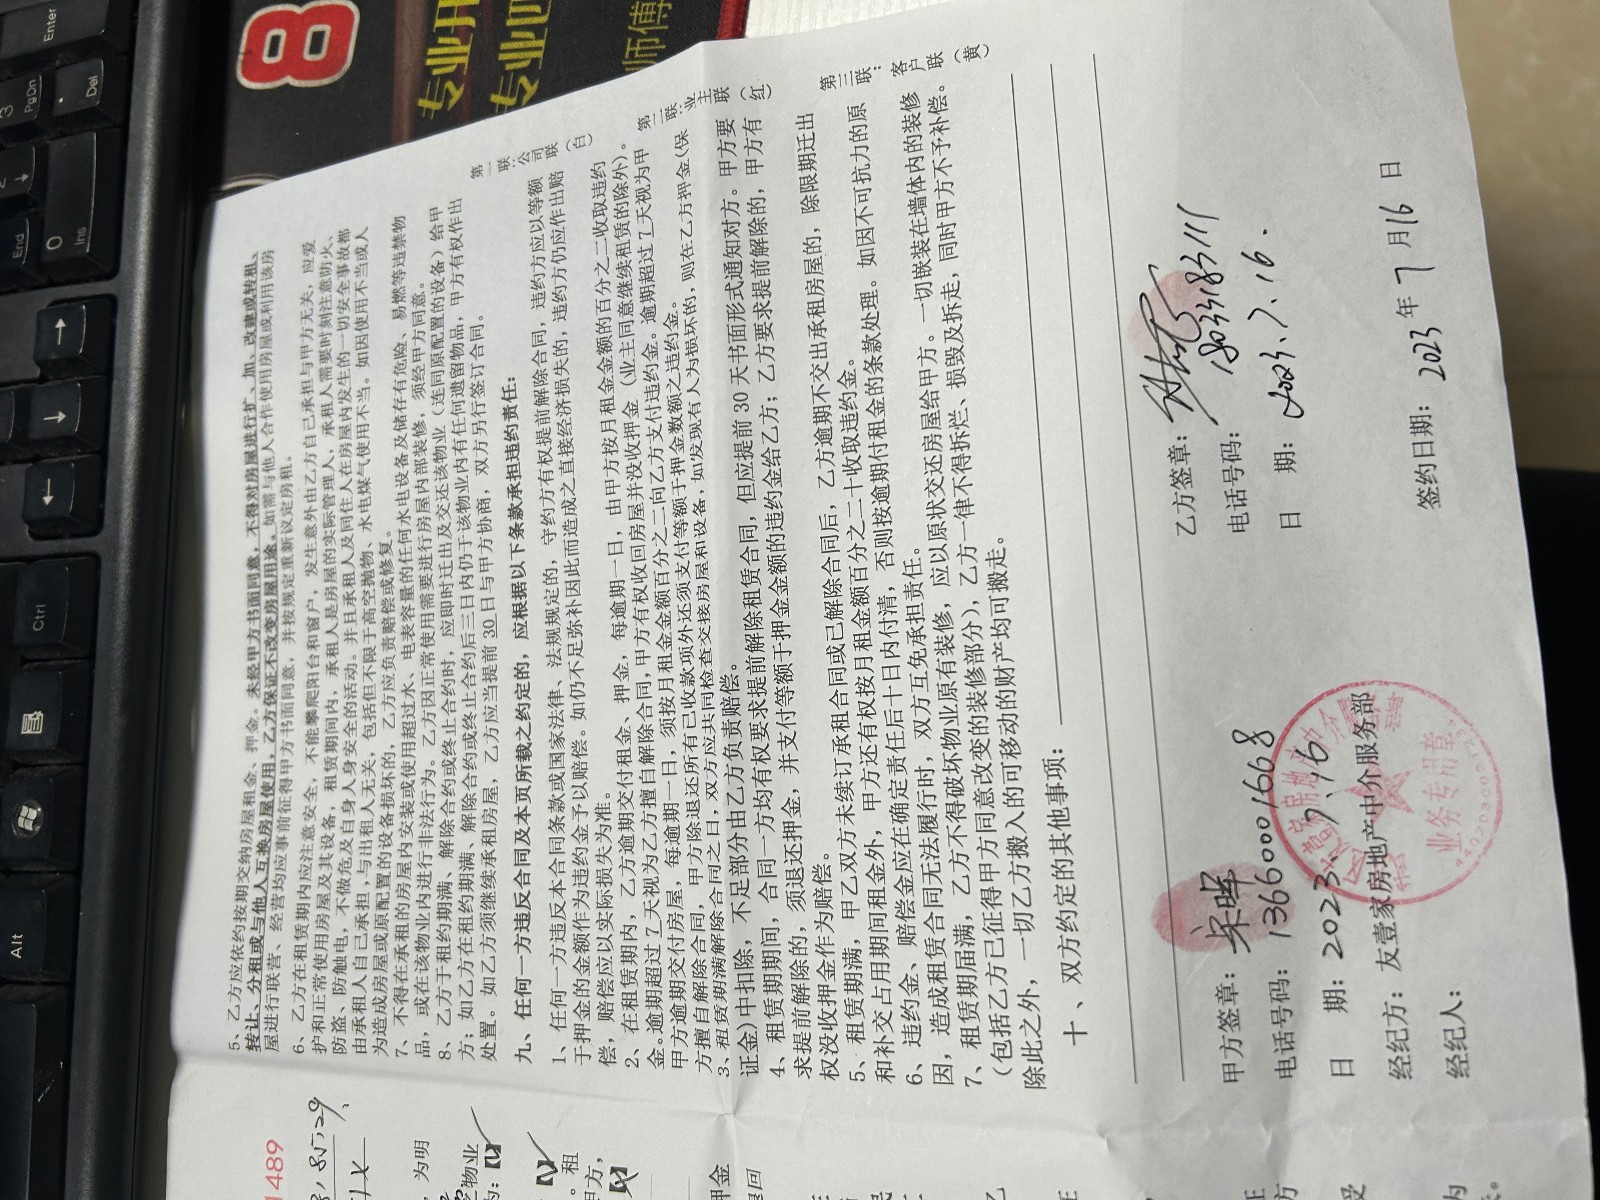 5、乙方应依约按期交纳房屋租金、押金。未经甲方书面同意，不得对房屋进行扩、加、改建或转租、
转让、分租或与他人互换房屋使用，乙方保证不改变房屋用途。如需与他人合作使用房屋或利用该房
屋进行联营、经营均应事前征得甲方书面同意，并按规定重新议定房租。
6、乙方在租赁期内应注意安全，不能攀爬阳台和窗户，发生意外由乙方自己承担与甲方无关，应爱
护和正常使用房屋及其设备，租赁期间内，承租人是房屋的实际管理人，承租人需要时刻注意防火、
防盗、防触电，不做危及自身人身安全的活动。并且承租人及同住人在房屋内发生的一切安全事故都
由承租人自己承担，与出租人无关，包括但不限于高空抛物、水电煤气使用不当。如因使用不当或人
为造成房屋或原配置的设备损坏的，乙方应负责赔偿或修复。
7、不得在承租的房屋内安装或使用超过水、电表容量的任何水电设备及储存有危险、易燃等违禁物
品，或在该物业内进行非法行为。乙方因正常使用需要进行房屋内部装修，须经甲方同意。
8、乙方于租约期满、解除合约或终止合约时，应即时迁出及交还该物业（连同原配置的设备）给甲
方；如乙方在租约期满、解除合约或终止合约后三日内仍于该物业内有任何遗留物品，甲方有权作出
处置。如乙方须继续承租房屋，乙方应当提前 30 日与甲方协商，双方另行签订合同。
九、任何一方违反合同及本页所载之约定的，应根据以下条款承担违约责任：
1、任何一方违反本合同条款或国家法律、法规规定的，守约方有权提前解除合同，违约方应以等额
于押金的金额作为违约金予以赔偿。如仍不足弥补因此而造成之直接经济损失的，违约方仍应作出赔
偿，赔偿应以实际损失为准。
2、在租赁期内，乙方逾期交付租金、押金，每逾期一日，由甲方按月租金金额的百分之二收取违约
金。逾期超过 7 天视为乙方擅自解除合同，甲方有权收回房屋并没收押金（业主同意继续租赁的除外）。
甲方逾期交付房屋，每逾期一日，须按月租金金额百分之二向乙方支付违约金。逾期超过 7 天视为甲
方擅自解除合同，甲方除退还所有已收款项外还须支付等额于押金数额之违约金。
3、租赁期满解除合同之日，双方应共同检查交接房屋和设备，如发现有人为损坏的，则在乙方押金(保
证金)中扣除，不足部分由乙方负责赔偿。
4、租赁期期间，合同一方均有权要求提前解除租赁合同，但应提前 30 天书面形式通知对方。甲方要
求提前解除的，须退还押金，并支付等额于押金金额的违约金给乙方；乙方要求提前解除的，甲方有
权没收押金作为赔偿。
5、租赁期满，甲乙双方未续订承租合同或已解除合同后，乙方逾期不交出承租房屋的，除限期迁出
和补交占用期间租金外，甲方还有权按月租金额百分之二十收取违约金。
6、违约金、赔偿金应在确定责任后十日内付清，否则按逾期付租金的条款处理。如因不可抗力的原
因，造成租赁合同无法履行时，双方互免承担责任。
7、租赁期届满，乙方不得破坏物业原有装修，应以原状交还房屋给甲方。一切嵌装在墙体内的装修
（包括乙方已征得甲方同意改变的装修部分），乙方一律不得拆烂、损毁及拆走，同时甲方不予补偿。
除此之外，一切乙方搬入的可移动的财产均可搬走。
十、双方约定的其他事项：
第一联：公司联（白）
第二联：业主联（红）
第三联：客户联（黄）
甲方签章：宋晖
电话号码：13660001668
日 期：2023.7.16
经纪方：友壹家房地产中介服务部
经纪人：
业务专用章
乙方签章：
电话号码：18033183711
日 期：2023.7.16.
签约日期：2023 年 7 月 16 日
1489
，为明
物业
租
甲方，
押金
退回
8
专业开
专业四
师傅
Enter
3
PgDn
.
Del
End
0
Ins
Ctrl
Alt